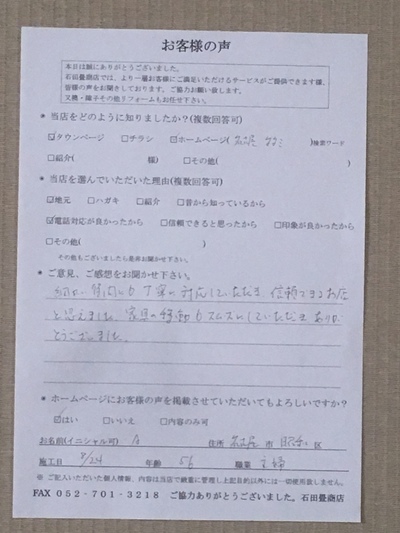 お客様の声
本日は誠にありがとうございました。
石田畳商店では、より一層お客様にご満足いただけるサービスがご提供できます様、
皆様の声をお聞きしております。ご協力お願い致します。
又襖・障子その他リフォームもお任せ下さい。
* 当店をどのように知りましたか?(複数回答可)
☑タウンページ □チラシ ☑ホームページ( 名古屋 )検索ワード
□紹介( 様) □その他( )
* 当店を選んでいただいた理由(複数回答可)
☑地元 □ハガキ □紹介 □昔から知っているから
☑電話対応が良かったから □信頼できると思ったから □印象が良かったから
□その他( )
その他もございましたら是非お聞かせ下さい。
* ご意見、ご感想をお聞かせ下さい。
質問にも丁寧に対応していただき 信頼できるお店
と思えました。家具の移動もスムズにしていただき ありが
とうございました。
* ホームページにお客様の声を掲載させていただいてもよろしいですか?
☑はい □いいえ □内容のみ可
お名前(イニシャル可) A 住所 名古屋 市 昭和 区
施工日 8/24 年齢 56 職業 主婦
※ ご記入いただいた個人情報、内容は当店で厳重に管理し上記目的以外には一切使用致しません。
FAX 052-701-3218 ご協力ありがとうございました。石田畳商店